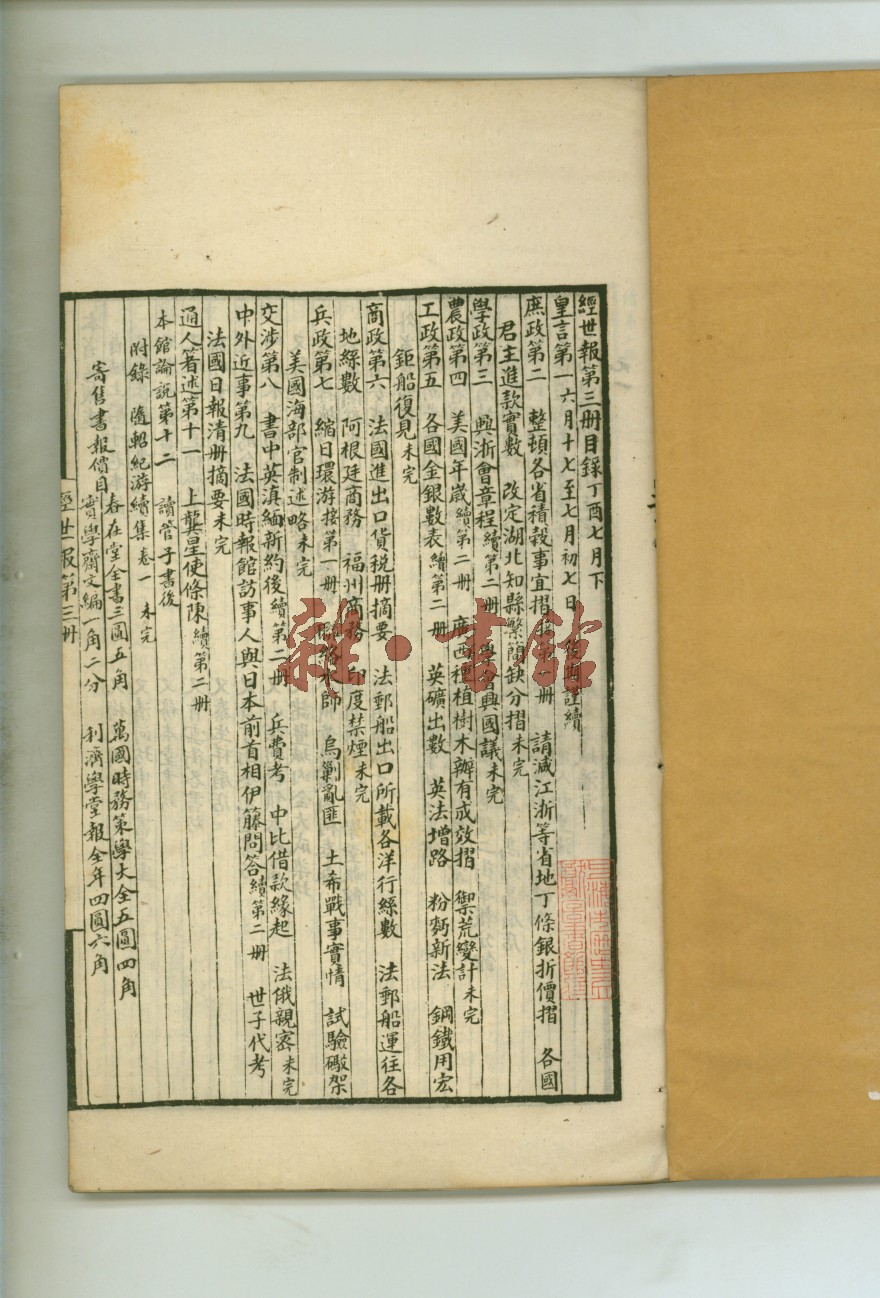 經世報第三册目録丁酉七月下
皇言第一六月十七至七月初七日 後期謹續
庶政第二 整頓各省積穀事宜摺 册 請減江浙等省地丁條銀折價摺 各國
君主進款實數 改定湖北知縣繁簡缺分摺未完
學政第三 興浙會章程續第二册 學會興國議未完
農政第四 美國年歲續第二册 廣西種植樹木辦有成效摺 禦荒變計未完
工政第五 各國金銀數表續第二册 英礦出數 英法增路 粉麪新法 鋼鐵用宏
鉅船復見未完
商政第六 法國進出口貨税册摘要 法郵船出口所載各洋行絲數 法郵船運往各
地絲數 阿根廷商務 福州商務 印度禁煙未完
兵政第七 縮日環游接第一册 師 烏剿亂匪 土希戰事實情 試驗礮架
美國海部官制述略未完
交涉第八 書中英滇緬新約後續第二册 兵費考 中比借款緣起 法俄親密未完
中外近事第九 法國時報館訪事人與日本前首相伊籐問答續第二册 世子代考
法國日報清册摘要未完
通人著述第十一 上龔星使條陳續第二册
本館論説第十二 讀管子書後
附錄 隨軺紀游續集卷一 未完
寄售書報價目 春在堂全書三圓五角 萬國時務策學大全五圓四角
實學齋文編一角二分 利濟學堂報全年四圓六角
經世報第三册
雜·書館